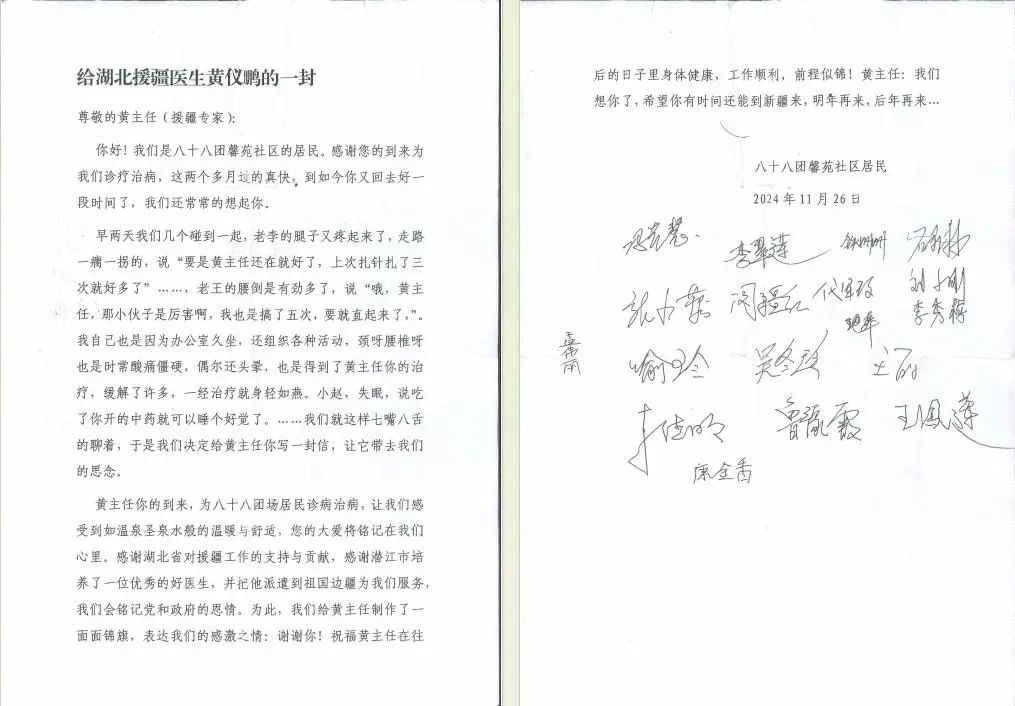 给湖北援疆医生黄仪鹏的一封
尊敬的黄主任（援疆专家）：
你好！我们是八十八团馨苑社区的居民。感谢您的到来为
我们诊疗治病，这两个多月过的真快，到如今你又回去好一
段时间了，我们还常常的想起你。
早两天我们几个碰到一起，老李的腿子又疼起来了，走路
一瘸一拐的，说“要是黄主任还在就好了，上次扎针扎了三
次就好多了”……，老王的腰倒是有劲多了，说“哦，黄主
任，那小伙子是厉害啊，我也是搞了五次，要就直起来了，”。
我自己也是因为办公室久坐，还组织各种活动，颈呀腰椎呀
也是时常酸痛僵硬，偶尔还头晕，也是得到了黄主任你的治
疗，缓解了许多，一经治疗就身轻如燕。小赵，失眠，说吃
了你开的中药就可以睡个好觉了。……我们就这样七嘴八舌
的聊着，于是我们决定给黄主任你写一封信，让它带去我们
的思念。
黄主任你的到来，为八十八团场居民诊病治病，让我们感
受到如温泉圣泉水般的温暖与舒适，您的大爱将铭记在我们
心里。感谢湖北省对援疆工作的支持与贡献，感谢潜江市培
养了一位优秀的好医生，并把他派遣到祖国边疆为我们服务，
我们会铭记党和政府的恩情。为此，我们给黄主任制作了一
面面锦旗，表达我们的感激之情：谢谢你！祝福黄主任在往
后的日子里身体健康，工作顺利，前程似锦！黄主任：我们
想你了，希望你有时间还能到新疆来，明年再来，后年再来…
八十八团馨苑社区居民
2024年11月26日
李翠莲
闫疆红
李秀梅
喻玲
吴冬玲
王丽
鲁胤霞
王凤莲
康金香